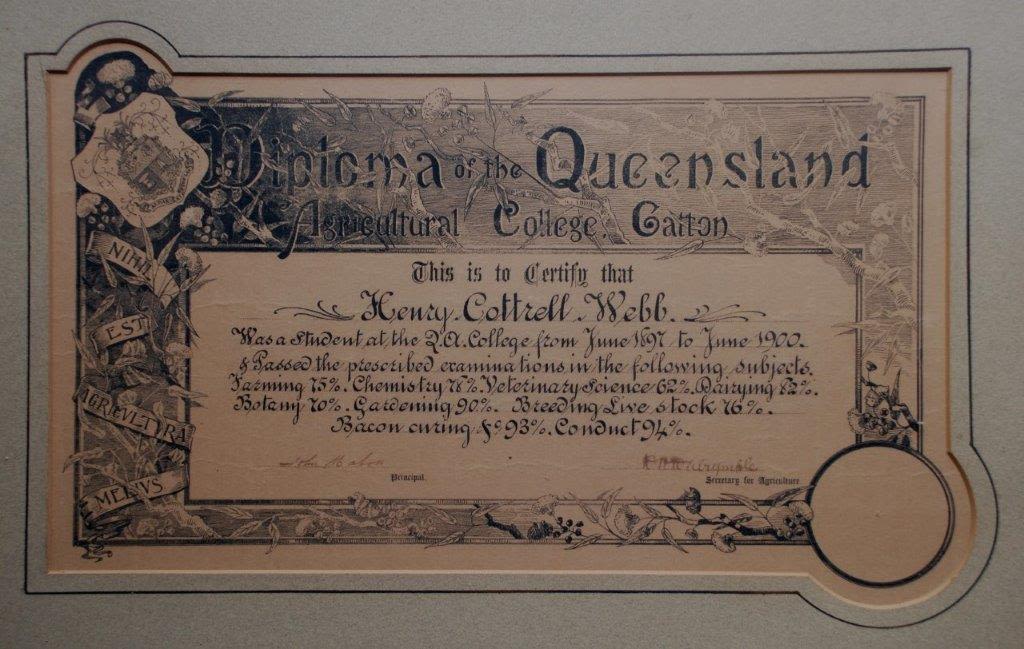 Diploma of the Queensland
Agricultural College, Gatton
NIHIL
EST
AGRICVLTVRA
MELIVS
This is to Certify that
Henry Cottrell Webb.
Was a student at the Q.A. College from June 1897 to June 1900.
& Passed the prescribed examinations in the following subjects.
Farming 75%. Chemistry 78% Veterinary Science 62%. Dairying 82%.
Botany 70%. Gardening 90%. Breeding Live stock 76%.
Bacon curing &c 93%. Conduct 94%.
John Mahon
Principal.
Secretary for Agriculture